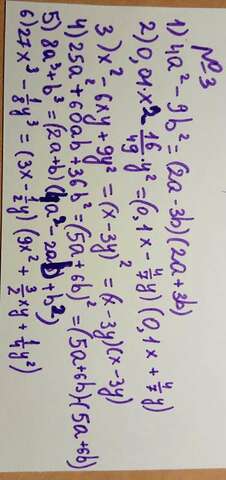 №3
1) 4a² - 9b² = (2a - 3b)(2a + 3b)
2) 0,01x² - 16/49 y² = (0,1x - 4/7 y)(0,1x + 4/7 y)
3) x² - 6xy + 9y² = (x - 3y)² = (x - 3y)(x - 3y)
4) 25a² + 60ab + 36b² = (5a + 6b)² = (5a + 6b)(5a + 6b)
5) 8a³ + b³ = (2a + b)(4a² - 2ab + b²)
6) 27x³ - 1/8 y³ = (3x - 1/2 y)(9x² + 3/2 xy + 1/4 y²)